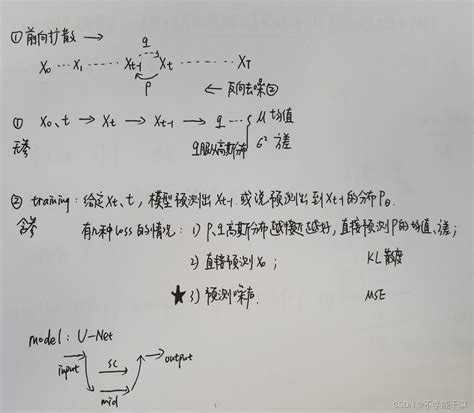 ① 前向扩散 → q
X₀ … X₁ …… Xt-1 Xt …… XT
p ← 反向去噪②
① X₀、t → Xt → Xt-1 → q … { μ 均值
无参 q服从高斯分布 σ² 方差
② training：给定Xt、t，模型预测出Xt-1. 或说预测出到Xt-1的分布Pθ.
含参 有几种loss的情况：1) P、q高斯分布越接近越好，直接预测P的均值、方差；
2) 直接预测X₀； KL散度
★ 3) 预测噪声. MSE
model：U-Net
input sc output
mid